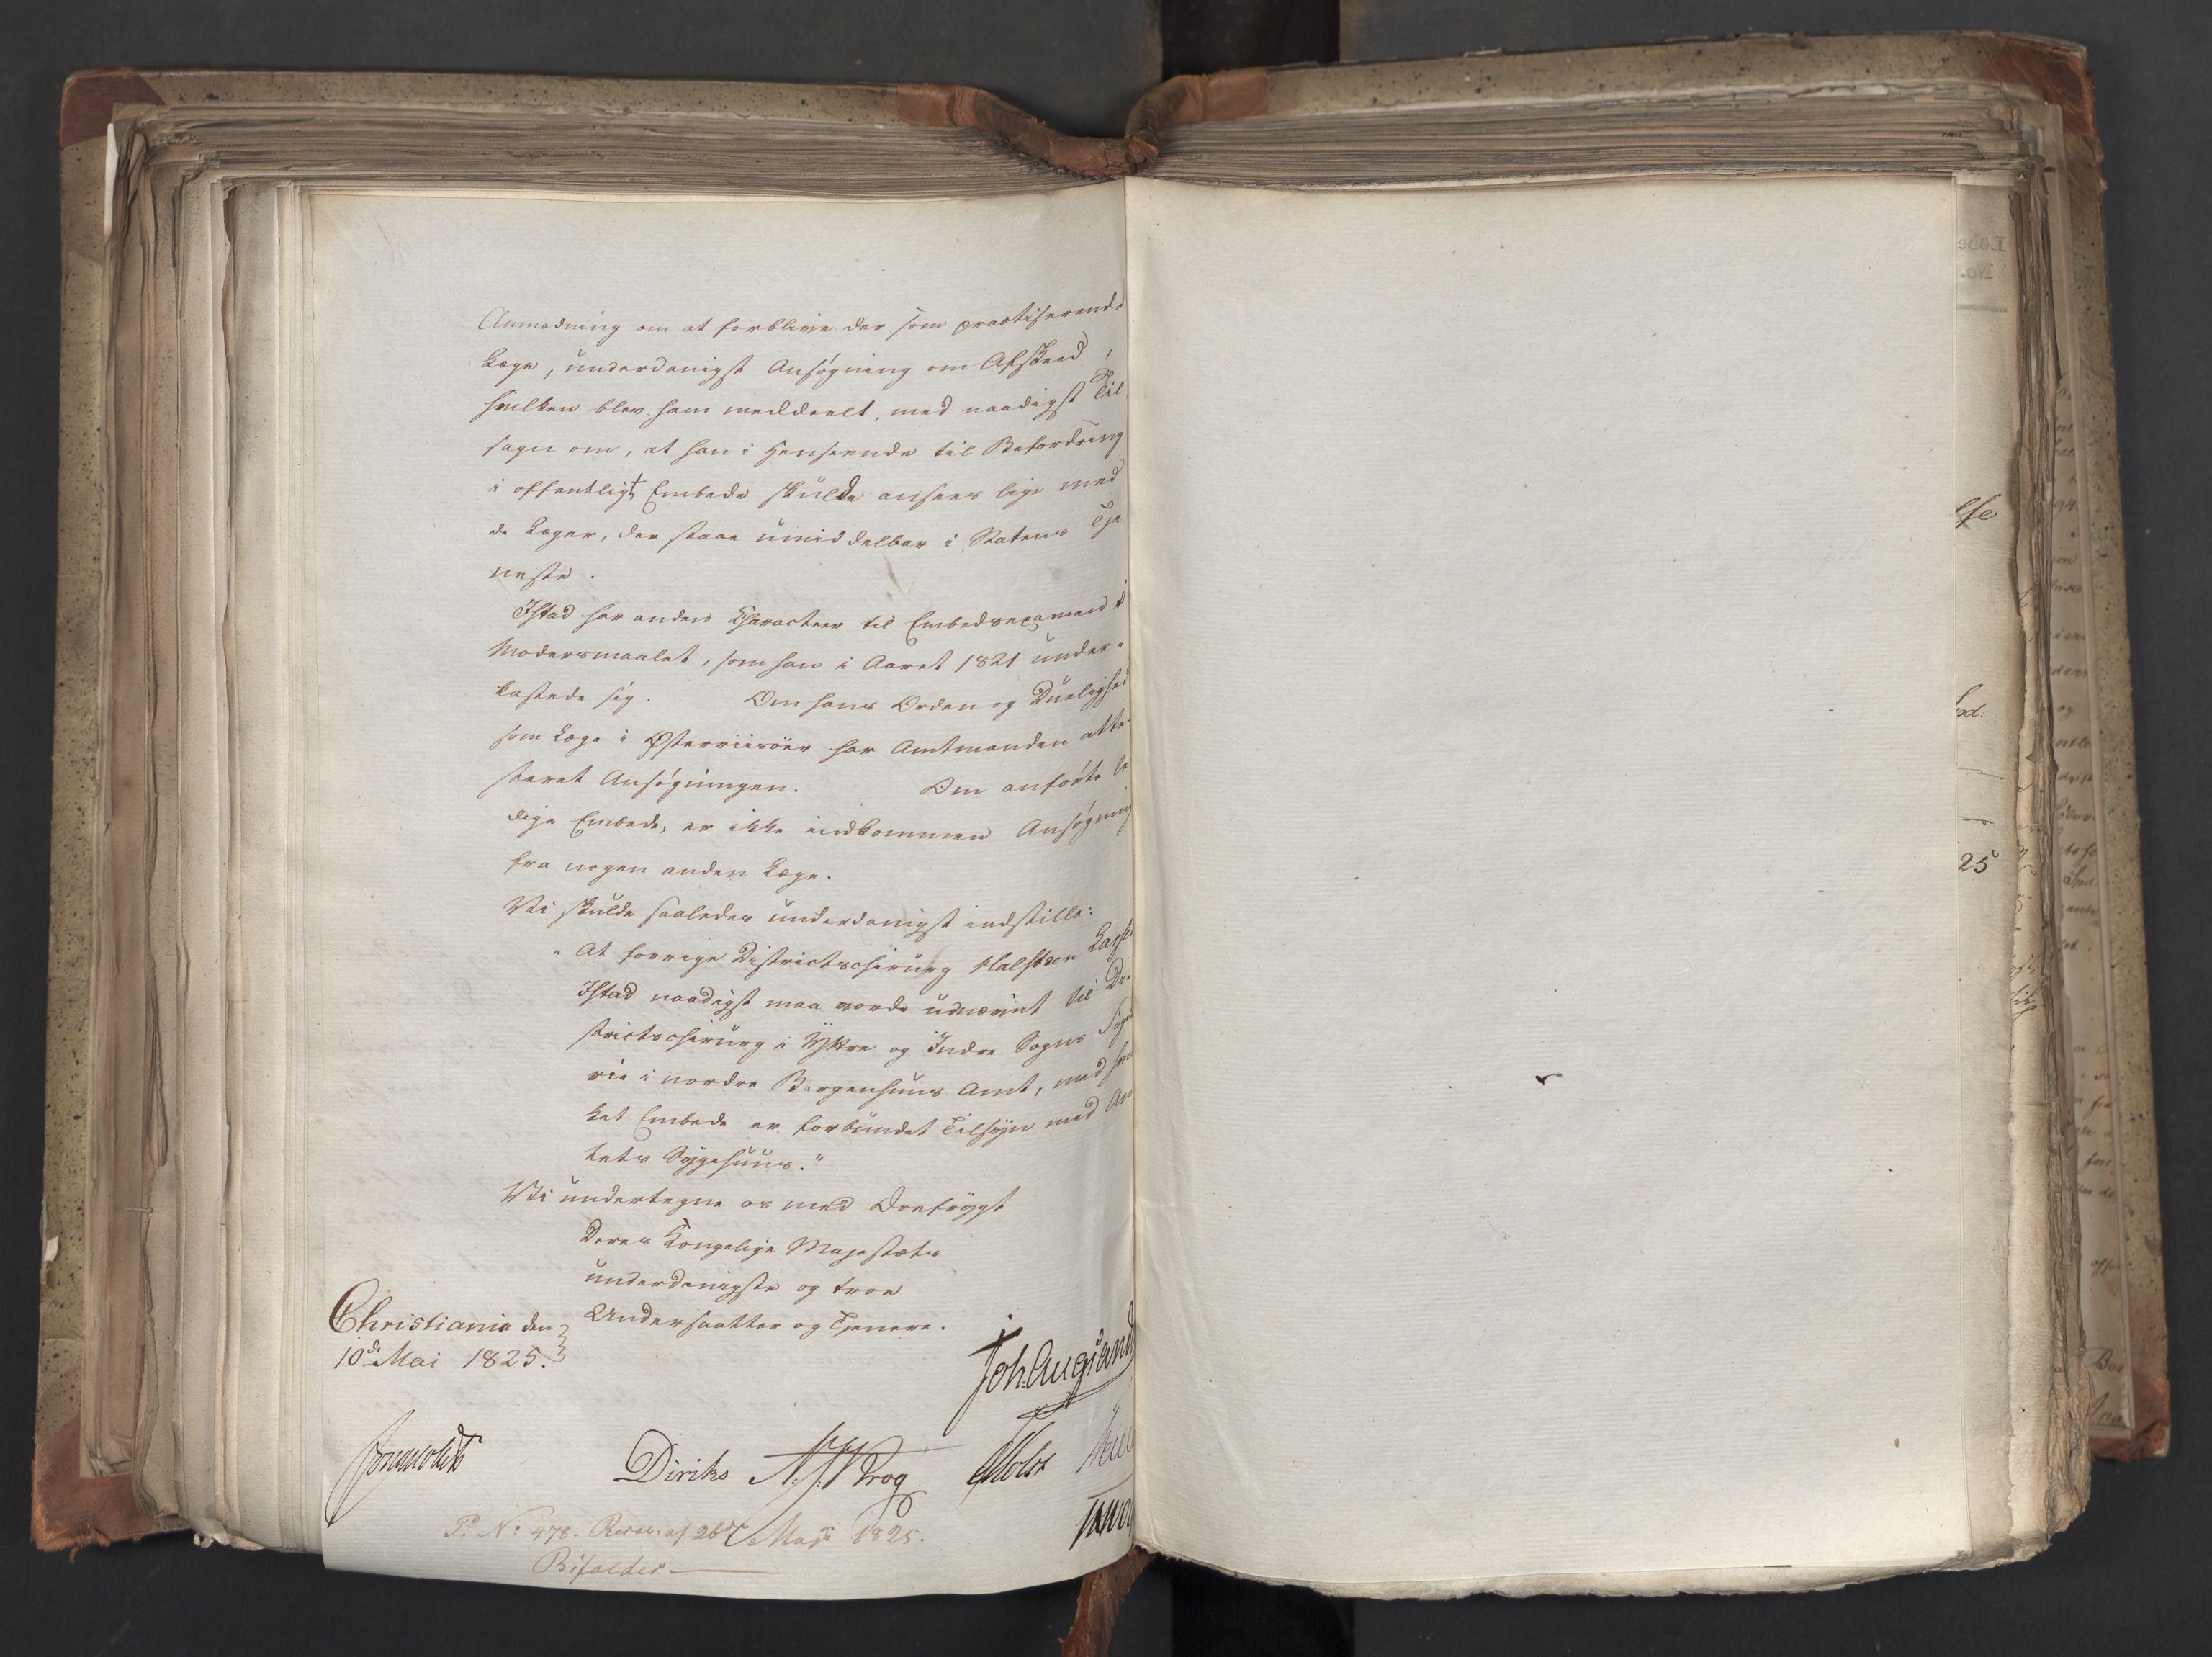 Anmodning om at forblive der som practiserende
Læge, underdanigst Ansøgning om Afskeed,
hvilken blev ham meddeelt, med naadigst Til
sagn om, at han i Henseende til Befordring
i offentligt Embede skulde ansees lige med
de Læger, der staae umiddelbar i Statens Tje
neste.
Istad har anden Characteer til Embedsexamen i
Modersmaalet, som han i Aaret 1821 under-
kastede sig. Om hans Orden og Duelighed
som Læge i Østerriisöer har Amtmanden atte-
steret Ansøgningen. Om anførte le
dige Embede, er ikke indkommen Ansøgning
fra nogen anden Læge.
Vi skulde saaledes underdanigst indstille:
"At forrige Districtschirurg Halsteen
Istad naadigst maa vorde udnævnt til Di-
strictschirurg i Yttre og Indre Sogns
rie i nordre Bergenhuus Amt, med
ket Embede er forbundet Tilsyn med Am
tets Sygehuus."
Vi undertegne os med Ærefrygt
Deres Kongelige Majestæts
underdanigste og troe
Undersaatter og Tjenere.
Christiania den
10de Mai 1825.
Joh: Aug: Sand
Diriks Krog Holst
No 478. Resol. af 26de Maji 1825.
Bifaldes
25